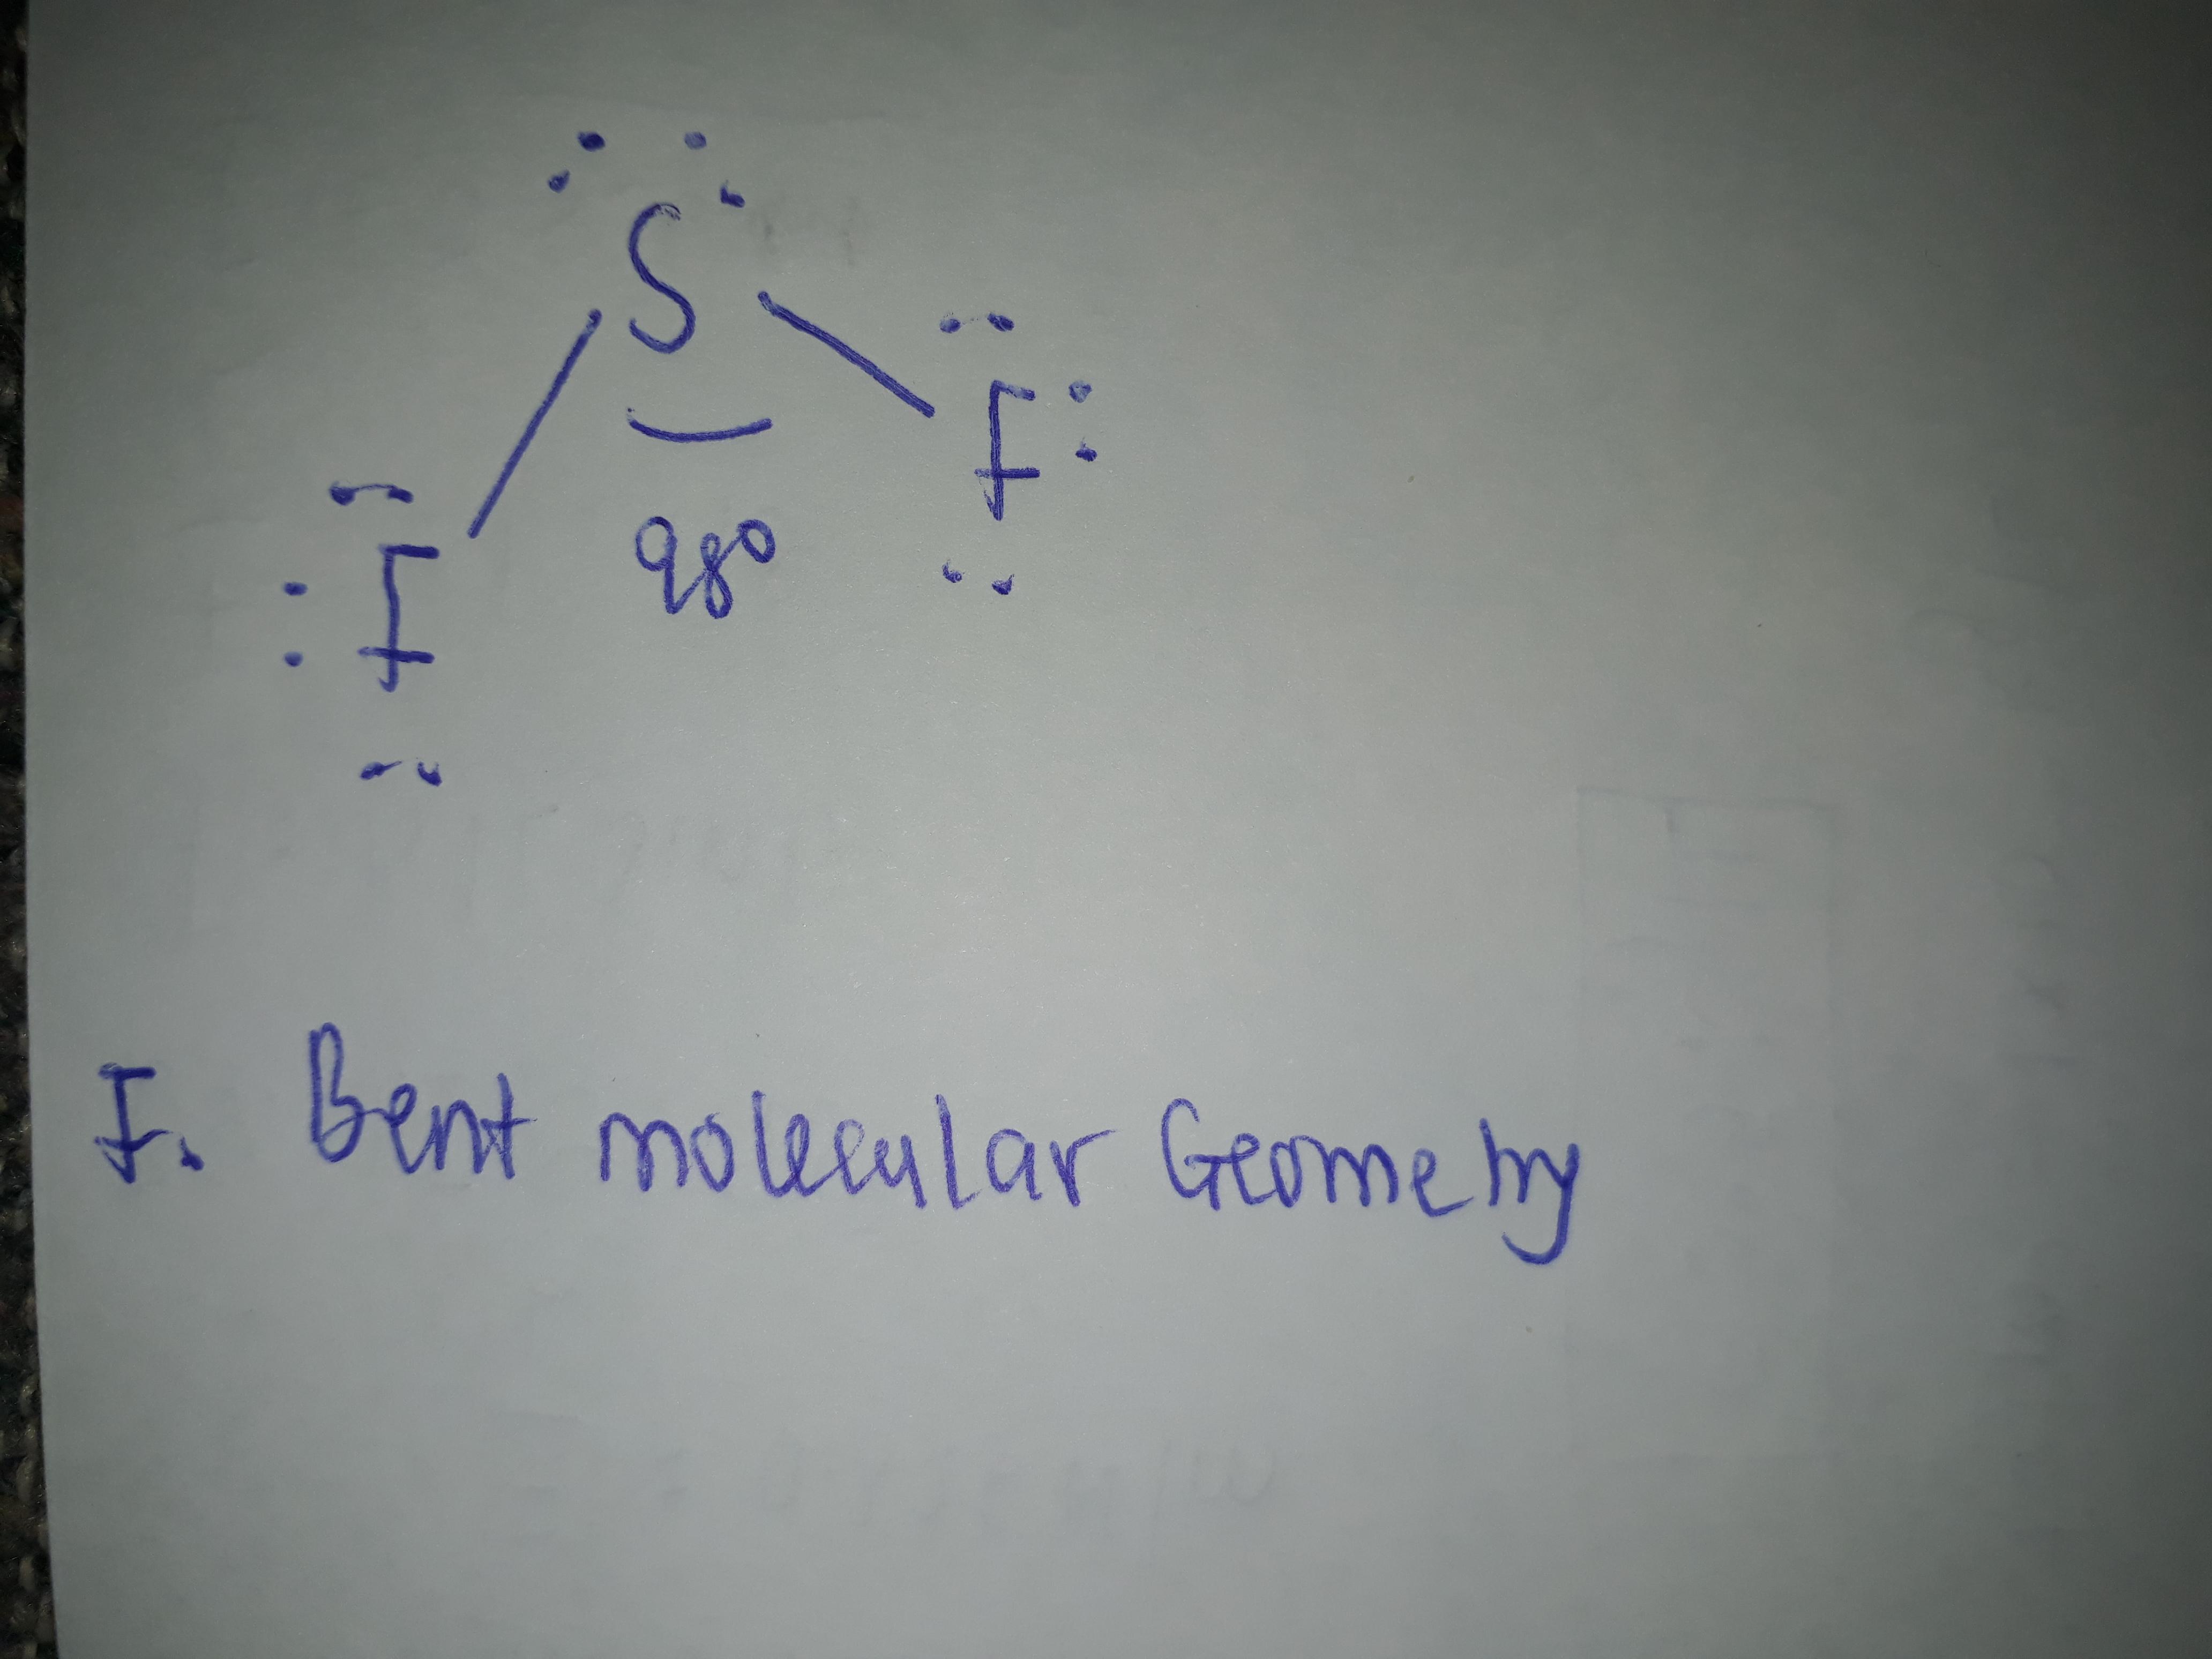 S
F
F
98°
F. Bent molecular Geometry